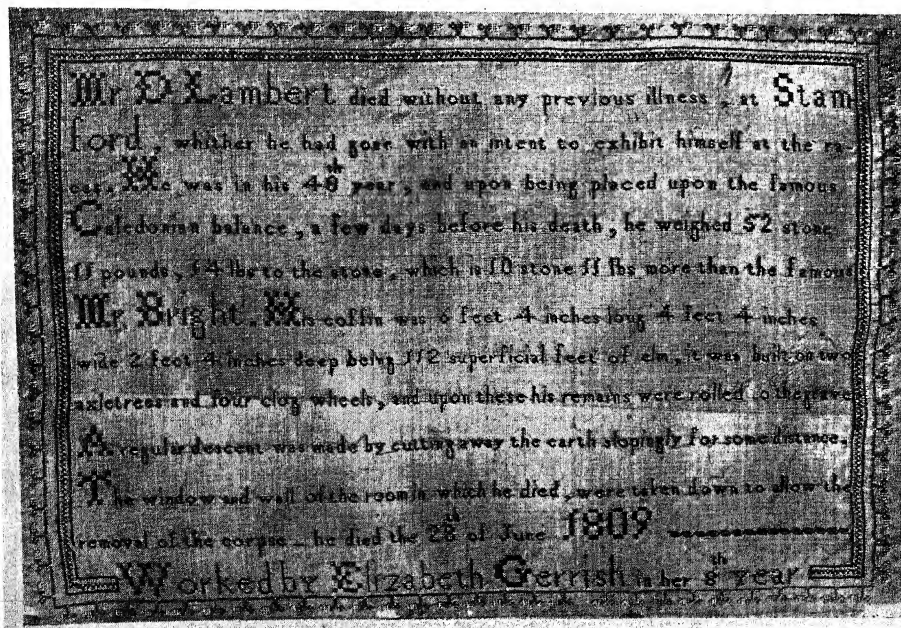 Mr D Lambert died without any previous illness, at Stam
ford, whither he had gone with an intent to exhibit himself at the ra
ces. He was in his 40th year, and upon being placed upon the famous
Caledonian balance, a few days before his death, he weighed 52 stone
11 pounds, 14 lbs to the stone, which is 10 stone 11 lbs more than the famous
Mr Bright. His coffin was 6 feet 4 inches long 4 feet 4 inches
wide 2 feet 4 inches deep being 112 superficial feet of elm, it was built on two
axletrees and four clog wheels, and upon these his remains were rolled to the grave
A regular descent was made by cutting away the earth slopingly for some distance.
The window and wall of the room in which he died, were taken down to allow the
removal of the corpse _ he died the 28th of June 1809
Worked by Elizabeth Gerrish in her 8th year